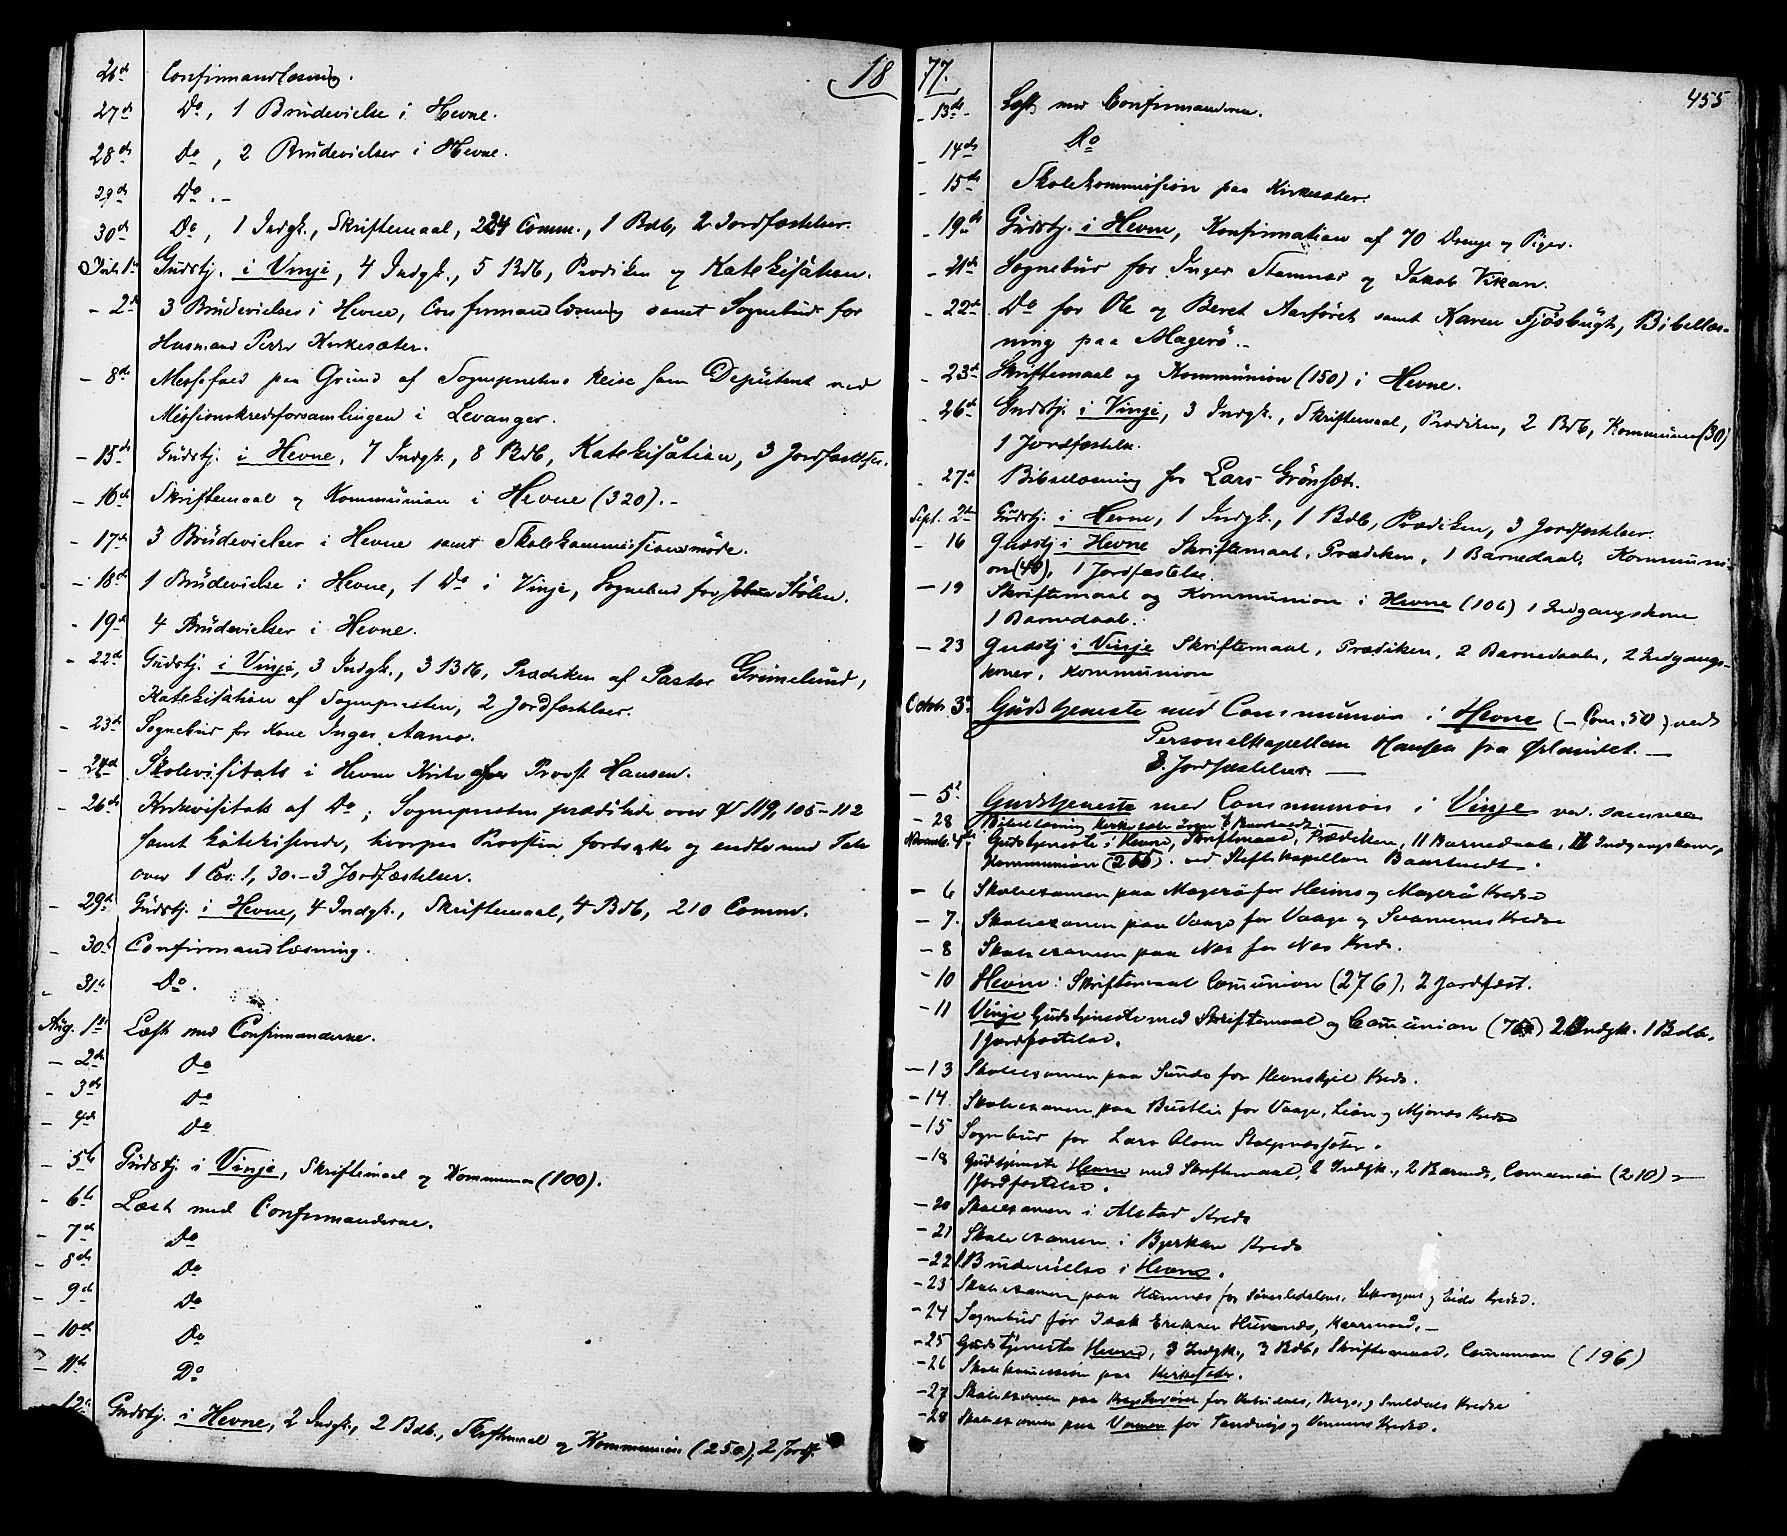 18
26de Confirmandlæsning.
27de Do, 1 Brudevielse i Hevne.
28de Do, 2 Brudevielser i Hevne.
29de Do. -
30de Do, 1 Indgk., Skriftemaal, 224 Comm., 1 Bdb, 2 Jordfæstelser.
Juli 1ste Gudstj. i Vinje, 4 Indgk., 5 Bdb, Prædiken og Katekisation.
- 2de 3 Brudevielser i Hevne, Confirmandlæsning samt Sognebud for
Husmand Peder Kirkesæter.
- 8de Messefald paa Grund af Sognepræstens Reise som Deputent ved
Missionskredsforsamlingen i Levanger.
- 15de Gudstj. i Hevne, 7 Indgk., 8 Bdb, Katekisation, 3 Jordfæstelser.
- 16de Skriftemaal og Kommunion i Hevne (320). -
- 17de 3 Brudevielser i Hevne samt Skolekommissionsmøde.
- 18de 1 Brudevielse i Hevne, 1 Do i Vinje, Sognebud for Johan Stølen.
- 19de 4 Brudevielser i Hevne.
- 22de Gudstj. i Vinje, 3 Indgk., 3 Bdb, Prædiken af Pastor Grimelund,
Katekisation af Sognepræsten, 2 Jordfæstelser.
- 23de Sognebud for Kone Inger Aamo.
- 24de Skolevisitats i Hevne Kirke af Provst Hansen.
- 26de Kirkevisitats af Do; Sognepræsten prædikede over Ψ 119, 105-112
samt katekiserede, hvorpaa Provsten fortsatte og endte med Tale
over 1 Cor. 1, 30. - 3 Jordfæstelser.
- 29de Gudstj. i Hevne, 4 Indgk., Skriftemaal, 4 Bdb, 210 Comm.
- 30te Confirmandlæsning.
- 31te Do.
Aug. 1ste Læst med Confirmanderne.
- 2de Do
- 3de Do
- 4de Do
- 5te Gudstj. i Vinje, Skriftemaal og Kommunion (100).
- 6te Læst med Confirmanderne.
- 7de Do
- 8de Do
- 9de Do
- 10de Do
- 11te Do
12te Gudstj. i Hevne, 2 Indgk., 2 Bdb., Skriftemaal og Kommunion (250), 2 Jordf.
77.
455
- 13de - Læst med Confirmanderne.
- 14de Do
- 15de Skolekommission paa Kirkesæter.
- 19de Gudstj. i Hevne, Konfirmation af 70 Drenge og Piger.
- 21de Sognebud for Inger Stamnes og Jakob Vikan.
- 22de Do for Ole og Beret Aarføret samt Karen Fjøsbugt, Bibellæs-
ning paa Magerö. -
- 23de Skriftemaal og Kommunion (150) i Hevne.
- 26de Gudstj. i Vinje, 3 Indgk., Skriftemaal, Prædiken, 2 Bdb, Kommunion (30)
1 Jordfæstelse.
- 27de Bibellæsning hos Lars Grönset.
Sept. 2den Gudstj. i Hevne, 1 Indgk., 1 Bdb, Prædiken, 3 Jordfæstelser.
- 16 Gudstj i Hevne Skriftemaal, Prædiken, 1 Barnedaab, Kommuni-
on (40), 1 Jordfæstelse.
- 19 Skriftemaal og Kommunion i Hevne (106) 1 Indgangskone
1 Barnedaab.
- 23 Gudstj i Vinje Skriftemaal, Prædiken, 2 Barnedaab, 2 Indgangs-
koner, Kommunion
Octobr. 3d Gudstjeneste med Communion i Hevne (- Com. 50) ved
Personelkapellan Hansen fra Ørlandet. -
3. Jordfæstelser. -
- 5t Gudstjeneste med Communion i Vinje ved samme
- 28 Bibellæsning Kirkesæter
Novemb. 4de Gudstjeneste i Hevne, Skriftemaal, Prædiken, 11 Barnedaab, 11 Indgangskoner,
Kommunion (265). ved Stiftskapellan Baarstvedt.
- 6 Skoleexamen paa Magerö for Heims og Magerö Kreds
- 7. Skoleexamen paa Vaage for Vaage og Svanems Kreds
- 8 Skoleexamen paa Næs for Næs Kreds.
- 10 Hevne: Skriftemaal Comunion (276), 2 Jordfæst.
- 11 Vinje Gudstjeneste med Skriftemaal og Comunion (76) 2 Indgk. 1 Bdb.
1 Jordfæstelse.
- 13 Skoleexamen paa Sunde for Hevnskjel Kreds.
- 14. Skoleexamen paa Bustlie for Vaage, Lian og Mjønes Kreds
- 15 Sognebud for Lars Olsen Stolpnessæter.
- 18 Gudstjeneste Hevne med Skriftemaal, 2 Indgk., 2 Barned., Comunion (210) -
1 Jordfæstelse.
- 20 Skoleexamen i Alstad Kreds
- 21 Skoleexamen i Bjerkan Kreds
- 22 1 Brudevielse i Hevne.
- 23 Skoleexamen paa Hamnes for og Eide Kreds.
- 24 Sognebud for Isak Eriksen
- 25 Gudstjeneste Hevne, 3 Indgk., 3 Bdb, Skriftemaal, Comunion (196)
- 26 Skolekomission paa Kirkesæter.
- 27 Skoleexamen paa for Bergs og Kreds
- 28 Skoleexamen paa for Tandvigs og Kreds.